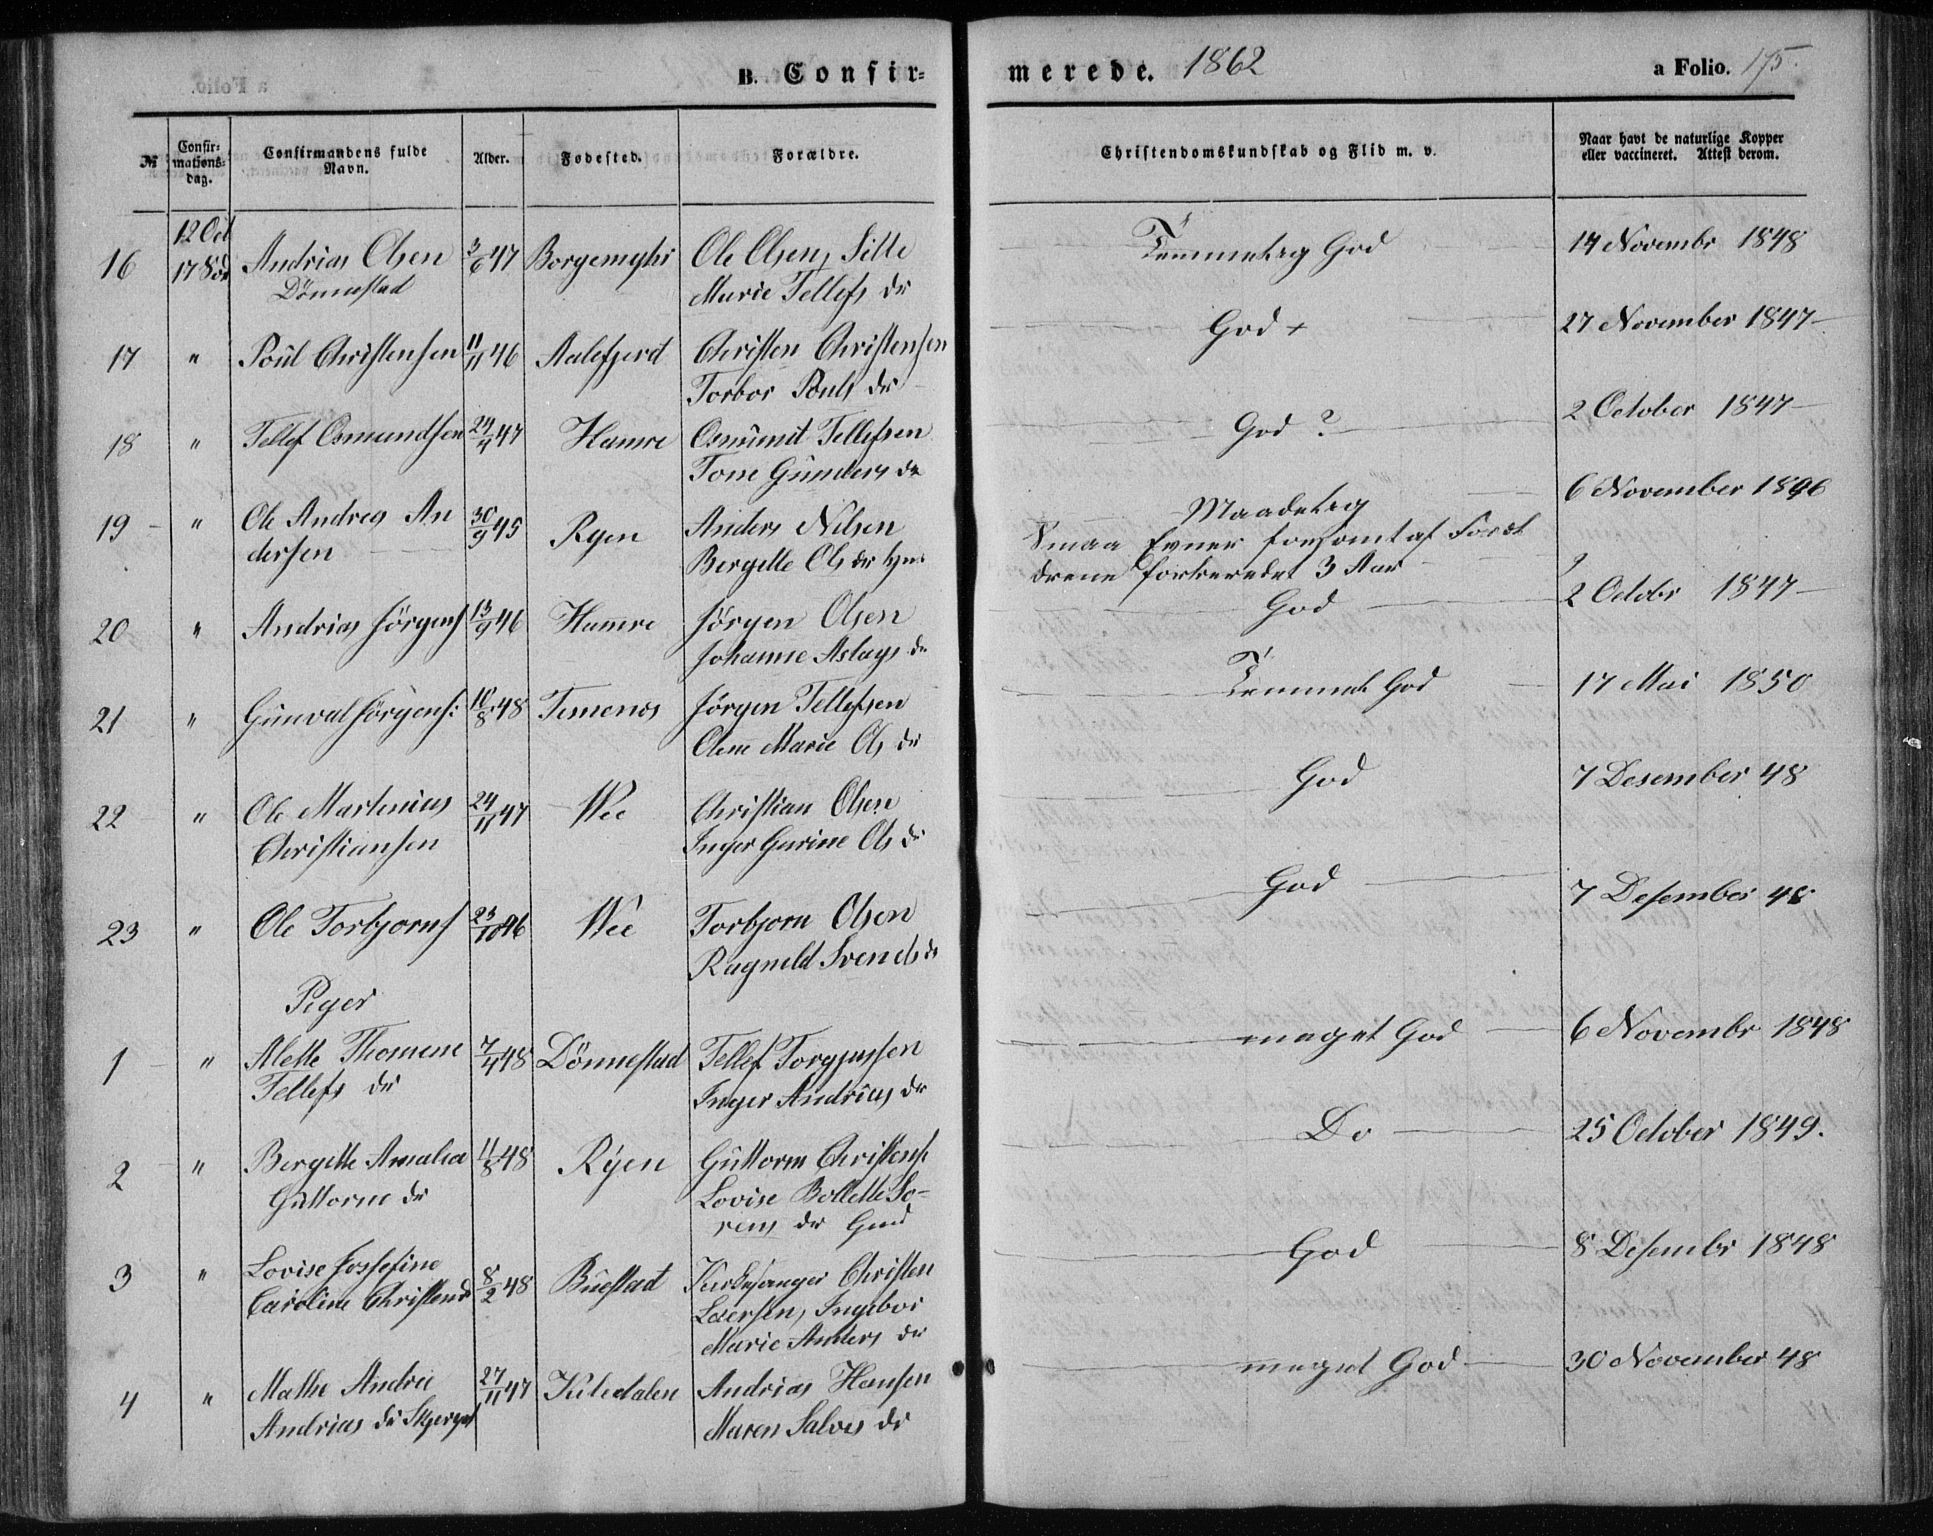 B. Confir-
merede. 1862
a Folio. 175.
№
Confir-
mations-
dag.
Confirmandens fulde
Navn.
Alder.
Fodested.
Forældre.
Christendomskundskab og Flid m. v.
Naar havt de naturlige Kopper
eller vaccineret. Attest derom.
12 Oct
16 Andrias Olsen 3/6 47 Borgemyhr Ole Olsen, Sille Temmelig God 14 Novembr 1848
Dönnestad Marie Tellefs dr
17 " Poul Christensen 11/11 46 Aalefjerd Christen Christensen God + 27 November 1847
Torbor Pouls dr
18 " Tellef Osmundsen 24/4 47 Hamre Osmund Tellefsen God ? 2 October 1847
Tone Gunders dr
19 " Ole Andreas An 30/9 45 Ryen Anders Nilsen Maadelig 6 November 1846
dersen Bergette Ols dr
Smaa Evner forsømt af Foræl
drene 3 Aar
20 " Andrias Jörgens 13/9 46 Hamre Jörgen Olsen God 2 Octobr 1847
Johanne Aslags dr
21 " Gunval Jörgens: 10/8 48 Temenes Jörgen Tellefsen Temmel God 17 Mai 1850
Olene Marie Ols dr
22 " Ole Martinius 24/11 47 Wee Christian Olsen God 7 Desember 48
Christiansen Inger Gurine Ols dr
23 " Ole Torbjorns 23/10 46 Wee Torbjorn Olsen God 7 Desember 48
Ragnild Svends dr
Piger
1 " Alette Thomine 7/4 48 Dönnestad Tellef Torgjussen meget God 6 Novembr 1848
Tellefs dr Inger Andrias dr
2 " Bergette Amalia 11/8 48 Ryen Guttorm Christens Do 25 October 1849.
Guttorms dr Lovise Bollette So-
rens dr
3 " Lovise Josefine 8/2 48 Buestad Kirkesanger Christen God 8 Desembr 1848
Caroline Christens dr Larsen, Ingebor
Marie Anders dr
4 " Mathe Andrie 27/11 47 Kiledalen Andrias Hansen meget God 30 November 48
Andrias dr Maren Salves dr